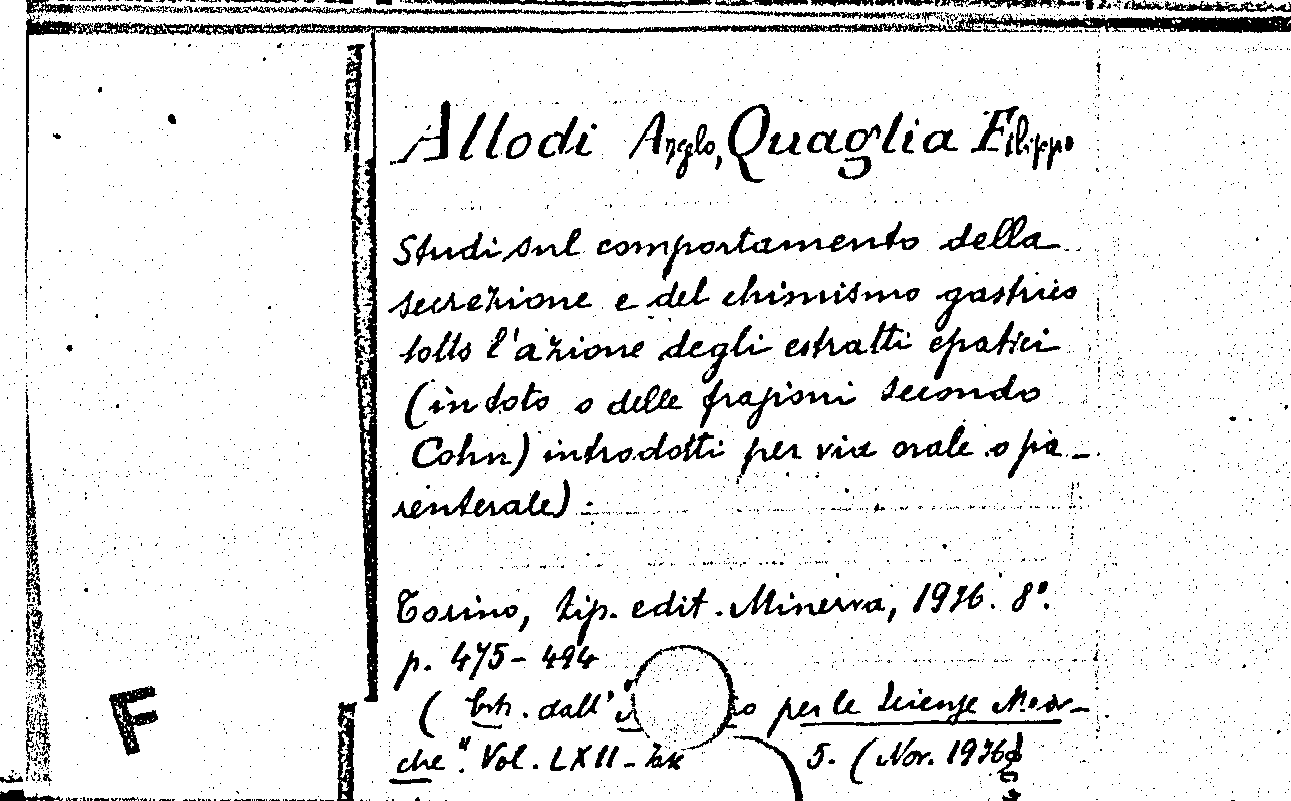 Allodi Anglo, Quaglia Filippo
Studi sul comportamento della
secrezione e del chimismo gastrico
sotto l'azione degli estratti epatici
(in toto o delle frazioni secondo
Cohn) introdotti per via orale o pa-
renterale).
Torino, tip. edit. Minerva, 1936. 8°.
p. 475-494
(Estr. dall' per le Scienze Medi-
che". Vol. LXII - 5. (Nov. 1936
F